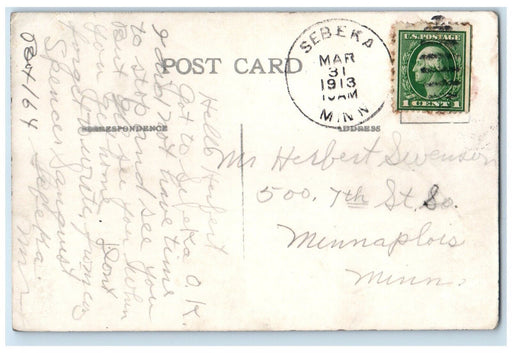 POST CARD
CORRESPONDENCE
ADDRESS
SEBEKA
MAR
31
1913
10AM
MINN
U.S. POSTAGE
1 CENT 1
Mr Herbert Swenson
500. 7th St. So.
Minnaplois
Minn.
Hello Herbert
Got to Sebeka O.K.
I did not have time
to stop and see you
But will see you when
you come home. Dont
forget to write, from
Spencer
Sebeka.
Minn
Box 164